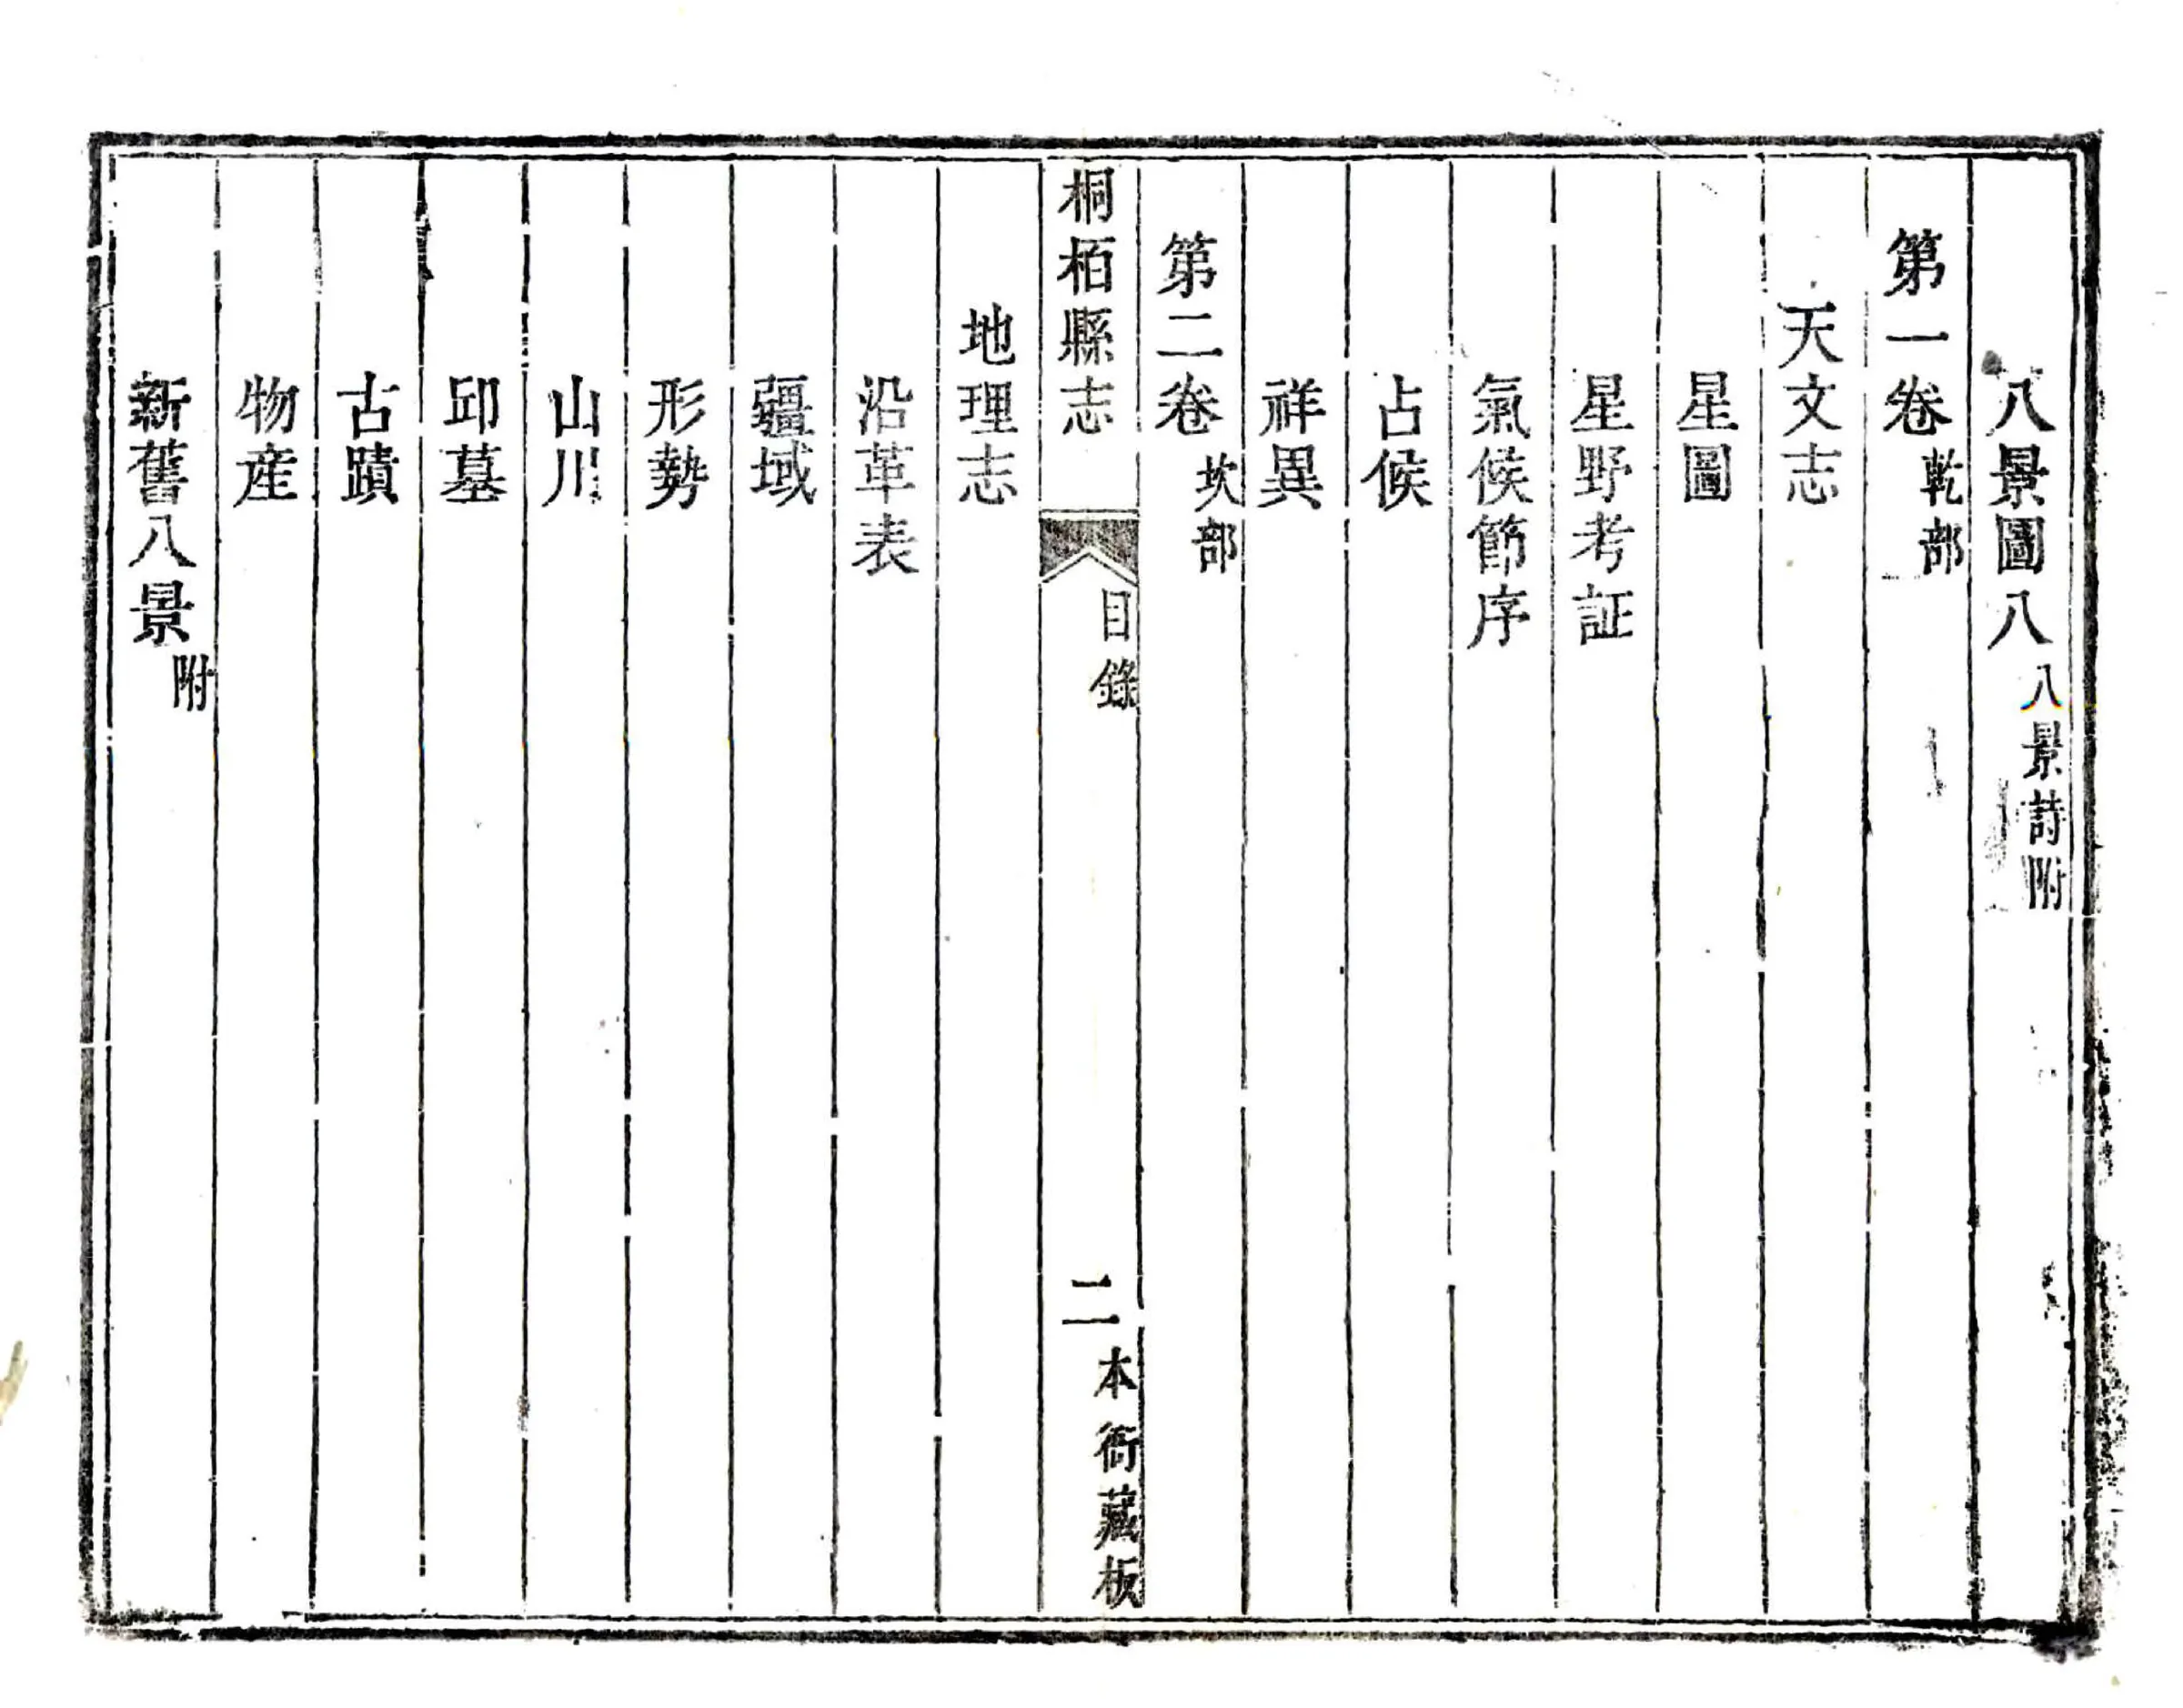 八景圖八八景詩附
第一卷乾部
天文志
星圖
星野考証
氣候節序
占候
祥異
第二卷坎部
桐栢縣志
目錄
二
本衙藏板
地理志
沿革表
疆域
形勢
山川
邱墓
古蹟
物産
新舊八景附